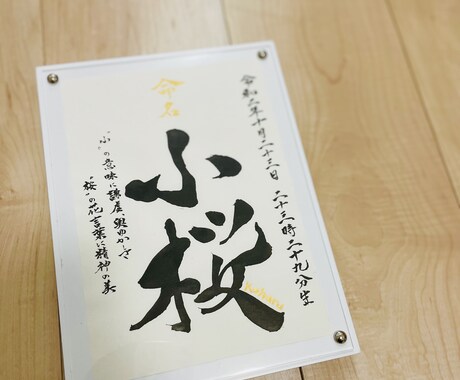 令和二年十月二十三日 二十三時二十九分生
命名
小桜
Koharu
"小"の意味に謙虚 奥ゆかしさ
"桜"の花言葉に精神の美